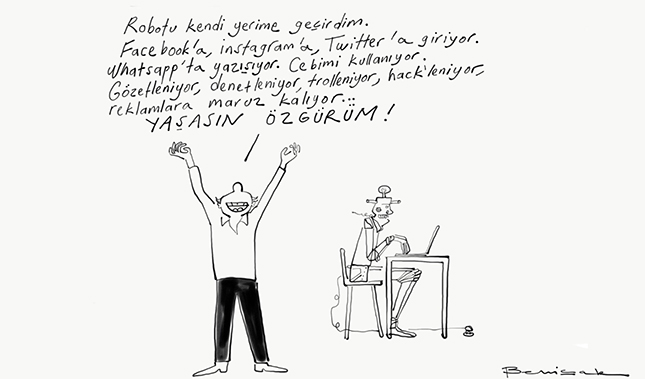 Robotu kendi yerime geçirdim.
Facebook'a, instagram'a, Twitter'a giriyor.
Whatsapp'ta yazışıyor. Cebimi kullanıyor.
Gözetleniyor, denetleniyor, trolleniyor, hack'leniyor,
reklamlara maruz kalıyor...
YAŞASIN ÖZGÜRÜM!
Behiç Ak